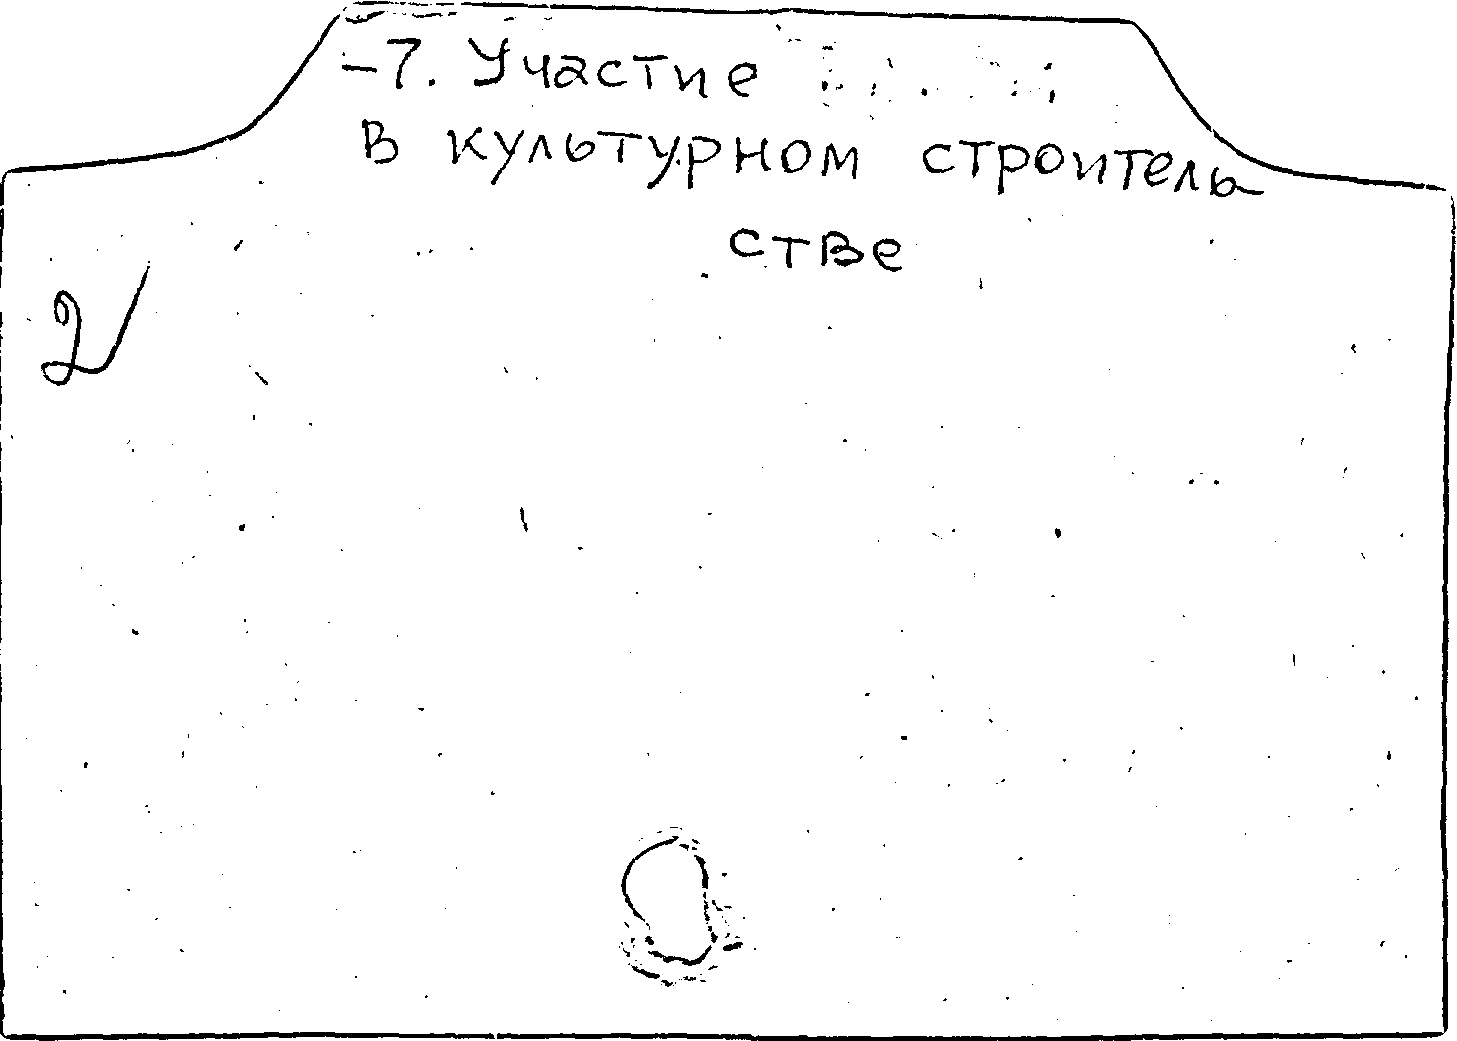 -7. Участие
в культурном строитель
стве
2